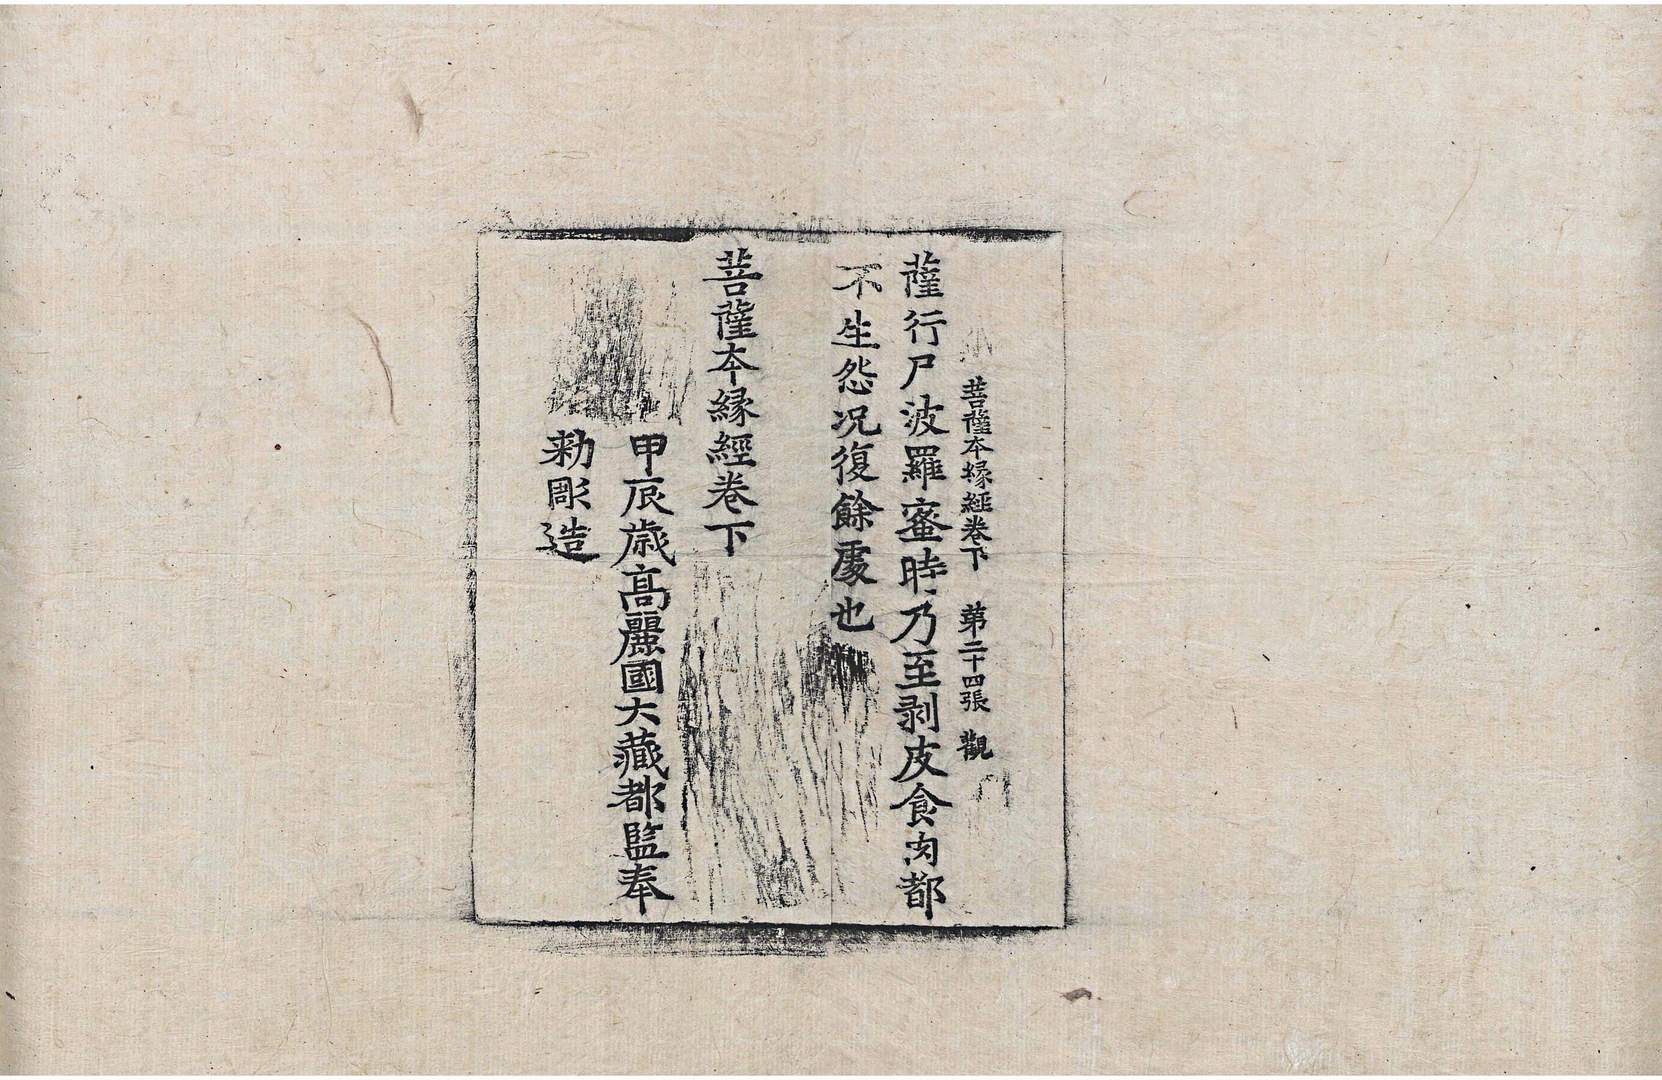 菩薩本緣經卷下 第二十四張 觀
薩行尸波羅蜜時乃至剥皮食肉都
不生怨况復餘處也
菩薩本緣經卷下
甲辰歲高麗國大藏都監奉
勑彫造